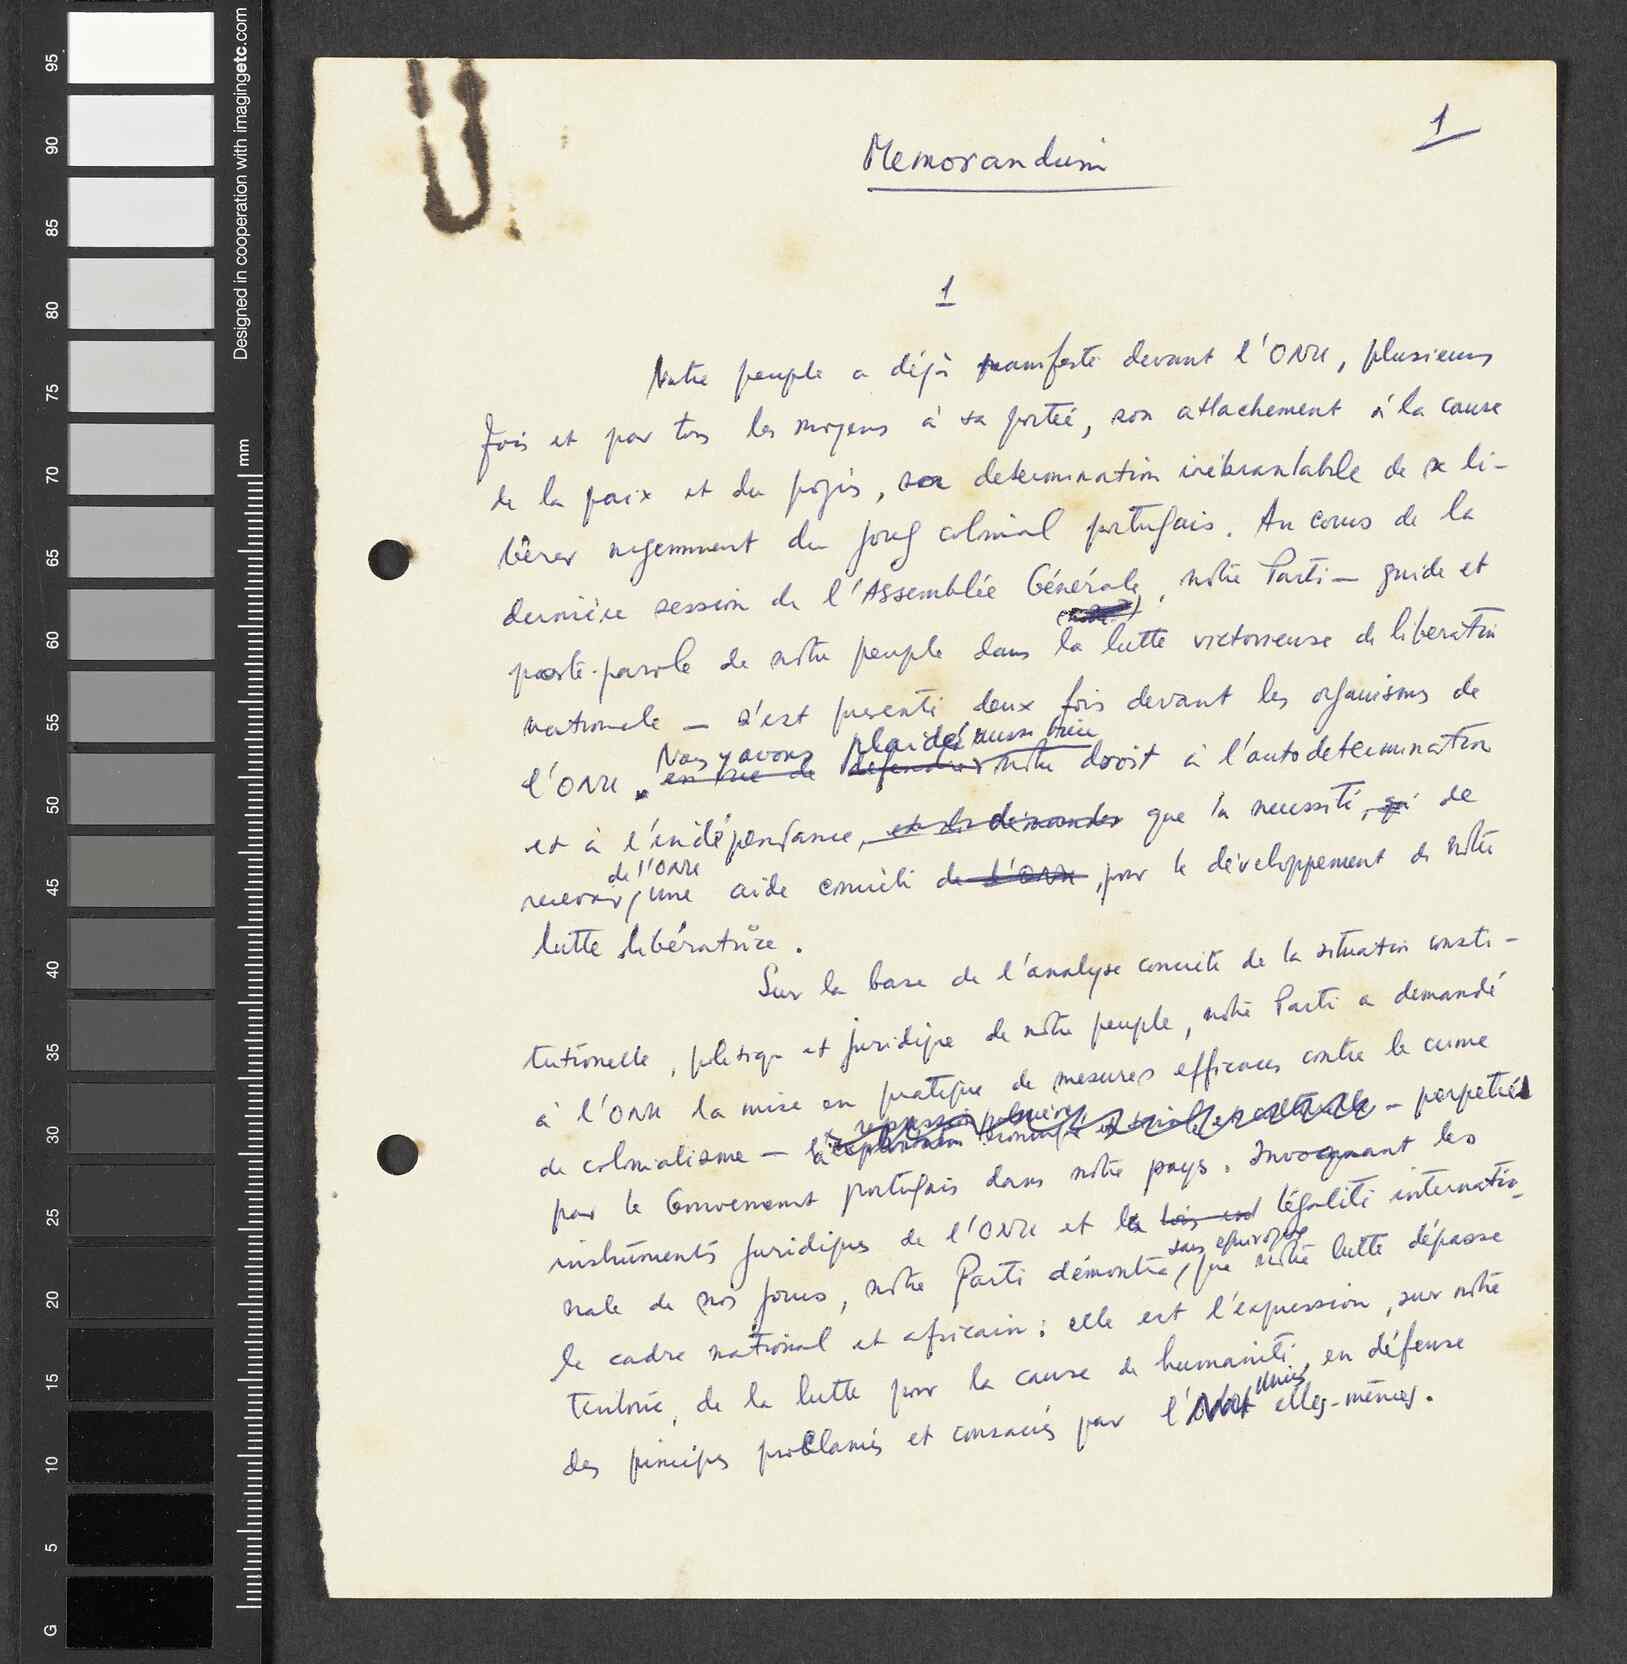 1
Memorandum
1
Notre peuple a déjà manifesté devant l'ONU, plusieurs
fois et par tous les moyens à sa portée, son attachement à la cause
de la paix et du progrès, sa determination inébranlable de se li-
bérer urgemment du joug colonial portugais. Au cours de la
dernière session de l'Assemblée Générale, notre Parti — guide et
porte-parole de notre peuple dans la lutte victorieuse de liberation
nationale — s'est presenté deux fois devant les organismes de
Nous y avons plaidé aussi bien
l'ONU. en vue de defendre notre droit à l'autodetermination
et à l'indépendance, et de demander que la necessité, de
de l'ONU
recevoir une aide concrète de l'ONU, pour le développement de notre
lutte libératrice.
Sur la base de l'analyse concrète de la situation consti-
tutionelle, politique et juridique de notre peuple, notre Parti a demandé
à l'ONU la mise en pratique de mesures efficaces contre le crime
de colonialisme — perpetré
par le Gouvernement portugais dans notre pays. Invoquant les
instruments juridiques de l'ONU et la légalité internatio-
sans equivoque
nale de nos jours, notre Parti démontra que notre lutte dépasse
le cadre national et africain: elle est l'expression, sur notre
territoire, de la lutte pour la cause de humanité, en défense
Unies
des principes proclamés et consacrés par elles-mêmes.
Designed in cooperation with imagingetc.com
mm
95
90
85
80
75
70
65
60
55
50
45
40
35
30
25
20
15
10
5
G